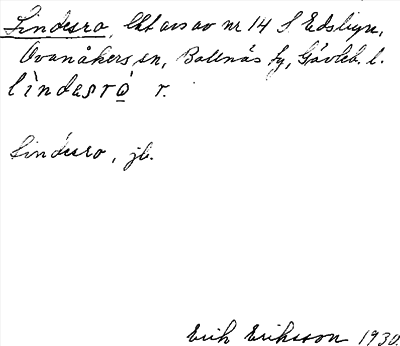 Lindesro, lht avs av nr 14 S. Edsbyn,
Ovanåkers sn, Bollnäs fg, Gävleb. l.
lìndesrò r.
Lindesro, jb.
Erik Eriksson 1930.